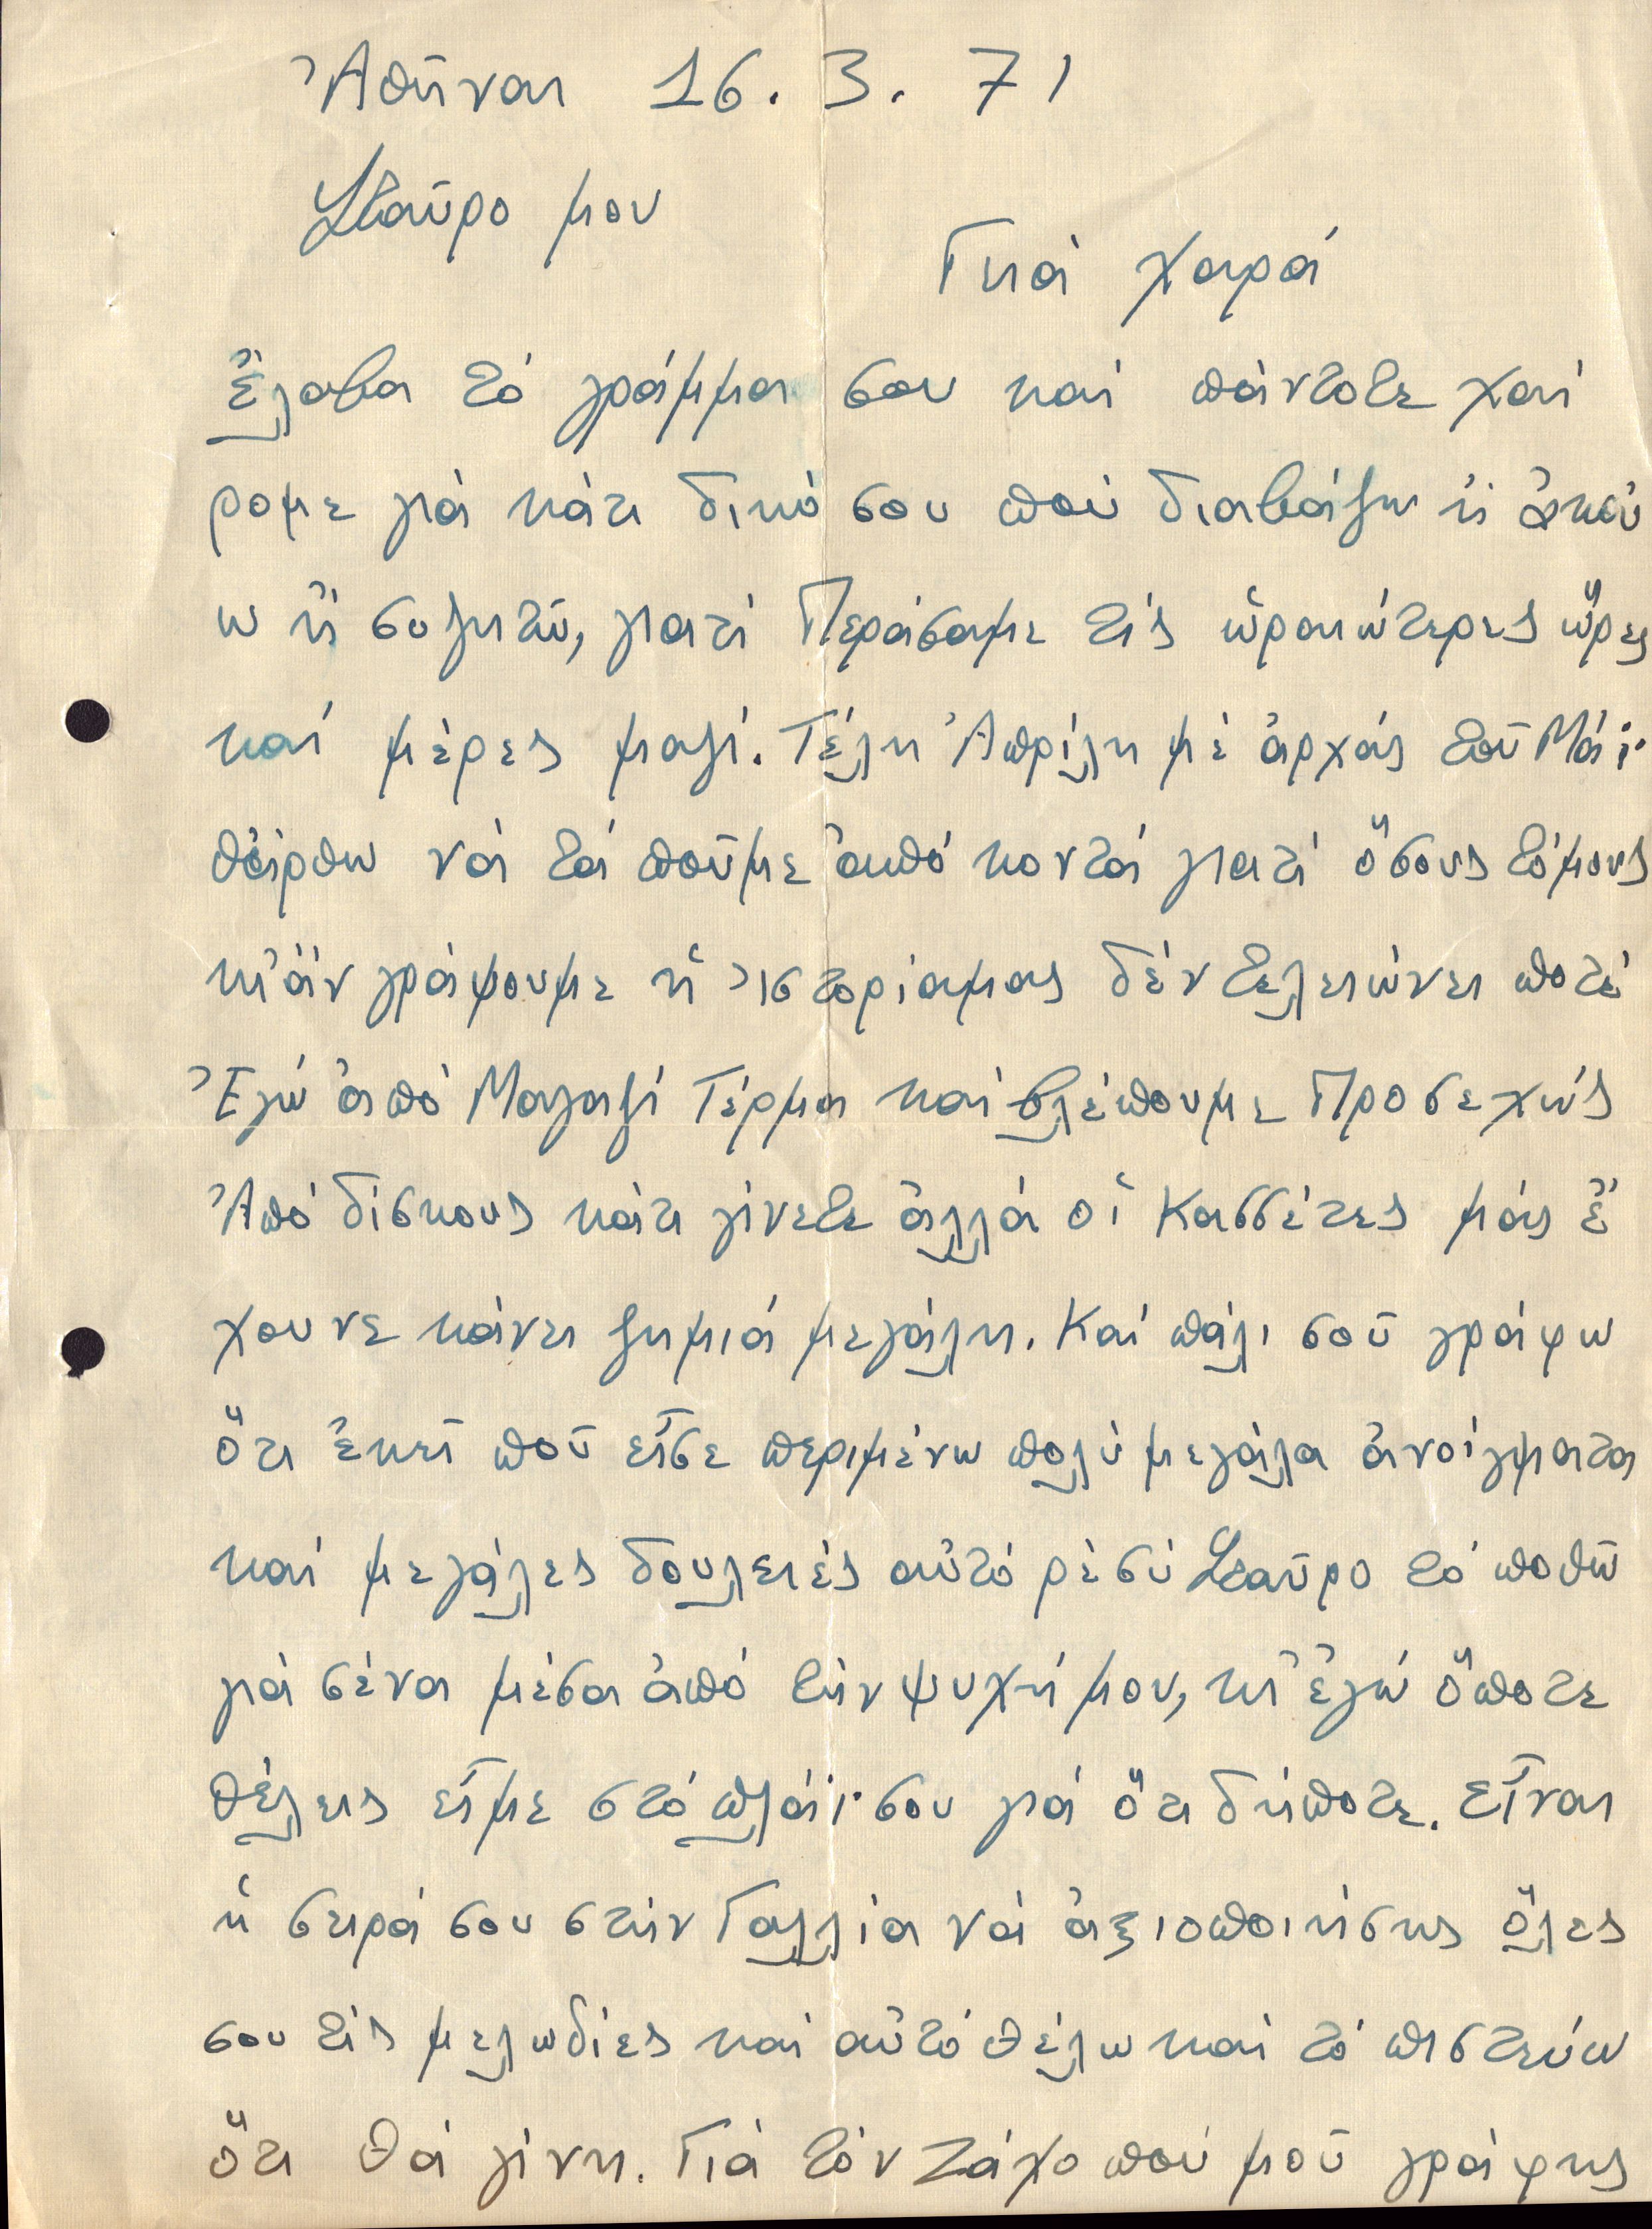 Ἀθῆναι 16. 3. 71
Σταῦρο μου
Γειά χαρά
Ἔλαβα τό γράμμα σου καί πάντοτε χαί
ρομε γιά κάτι δικό σου πού διαβάζω ἤ ἀκού
ω ἤ συζητῶ, γιατί Περάσαμε τίς ὡραιώτερες ὥρες
καί μέρες μαζί. Τέλη Ἀπρίλη μέ ἀρχάς τοῦ Μάϊ·
θἄρθω νά τά ποῦμε ἀπό κοντά γιατί ὅσους τόμους
κι' ἄν γράψουμε ἡ ἱστορίαμας δέν τελειώνει ποτέ
Ἐγώ ἀπό Μαγαζί Τέρμα καί βλέπουμε Προσεχώς
Ἀπό δίσκους κάτι γίνετε ἀλλά οἱ Κασσέτες μάς ἔ
χουνε κάνει ζημιά μεγάλη. Καί πάλι σοῦ γράφω
ὅτι ἐκεῖ ποῦ εἶσε περιμένω πολύ μεγάλα ἀνοίγματα
καί μεγάλες δουλειές αὐτό ρέ σύ Σταῦρο τό ποθῶ
γιά σένα μέσα ἀπό τήν ψυχή μου, κι' ἐγώ ὅποτε
θέλεις εἶμε στό πλάϊ· σου γιά ὅτι δήποτε. Εἶναι
ἡ σειρά σου στήν Γαλλία νά ἀξιοποιήσης ὅλες
σου τίς μελωδίες καί αὐτό θέλω καί τό πιστεύω
ὅτι θά γίνη. Γιά τόν Ζάχο πού μοῦ γράφης